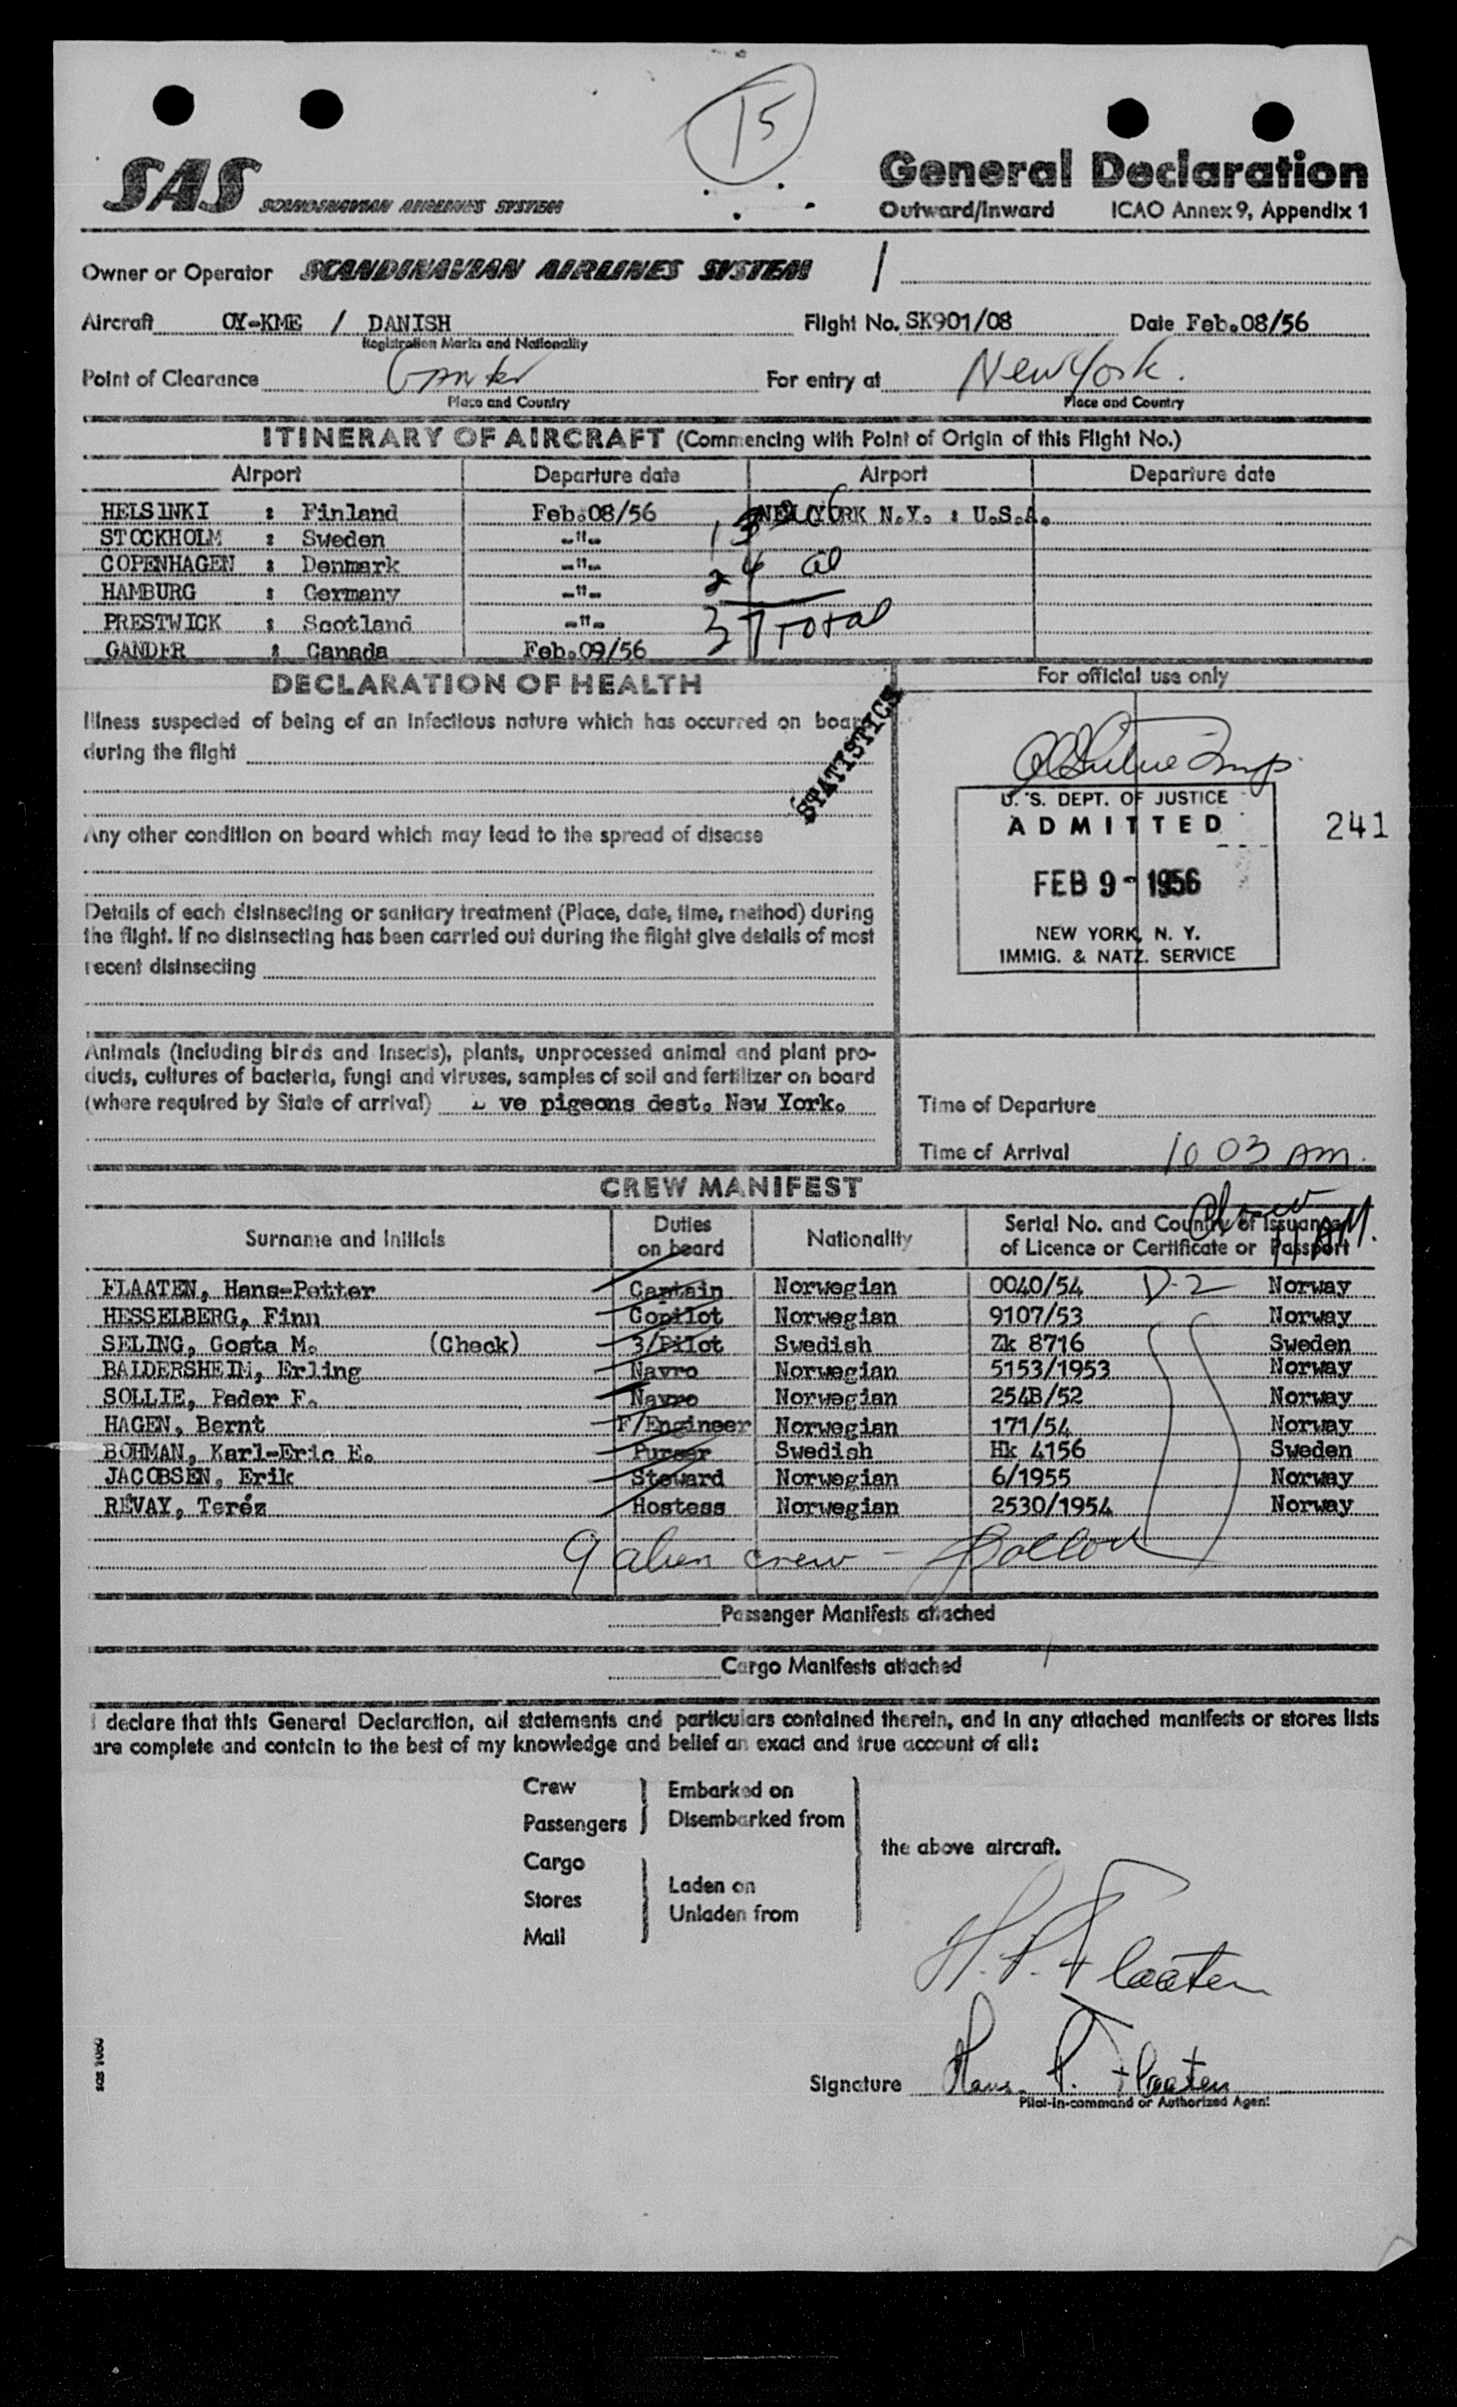 15
SAS SCANDINAVIAN AIRLINES SYSTEM
General Declaration
Outward/Inward ICAO Annex 9, Appendix 1
Owner or Operator SCANDINAVIAN AIRLINES SYSTEM /
Aircraft OY-KME / DANISH Flight No. SK901/08 Date Feb.08/56
Registration Marks and Nationality
Point of Clearance Gander For entry at New York.
Place and Country Place and Country
ITINERARY OF AIRCRAFT (Commencing with Point of Origin of this Flight No.)
Airport Departure date Airport Departure date
HELSINKI : Finland Feb.08/56 NEW YORK N.Y. : U.S.A.
STOCKHOLM : Sweden -"-
COPENHAGEN : Denmark -"-
24 al
HAMBURG : Germany -"-
PRESTWICK : Scotland -"- 37 Total
GANDER : Canada Feb.09/56
DECLARATION OF HEALTH
For official use only
Illness suspected of being of an infectious nature which has occurred on board
during the flight
STATISTICS
Any other condition on board which may lead to the spread of disease
U. S. DEPT. OF JUSTICE
ADMITTED
241
FEB 9 - 1956
NEW YORK, N. Y.
IMMIG. & NATZ. SERVICE
Details of each disinsecting or sanitary treatment (Place, date, time, method) during
the flight. If no disinsecting has been carried out during the flight give details of most
recent disinsecting
Animals (including birds and insects), plants, unprocessed animal and plant pro-
ducts, cultures of bacteria, fungi and viruses, samples of soil and fertilizer on board
(where required by State of arrival) L ve pigeons dest. New York.
Time of Departure
Time of Arrival 10 03 AM.
CREW MANIFEST
Surname and Initials Duties on board Nationality Serial No. and Country of Issuance of Licence or Certificate or Passport
FLAATEN, Hans-Petter Captain Norwegian 0040/54 D-2 Norway
HESSELBERG, Finn Copilot Norwegian 9107/53 Norway
SELING, Gosta M. (Check) 3/Pilot Swedish Zk 8716 Sweden
BALDERSHEIM, Erling Navro Norwegian 5153/1953 Norway
SOLLIE, Peder F. Navro Norwegian 254B/52 Norway
HAGEN, Bernt F/Engineer Norwegian 171/54 Norway
BOHMAN, Karl-Eric E. Purser Swedish Hk 4156 Sweden
JACOBSEN, Erik Steward Norwegian 6/1955 Norway
RÉVAY, Teréz Hostess Norwegian 2530/1954 Norway
9 alien crew -
Passenger Manifests attached
Cargo Manifests attached
I declare that this General Declaration, all statements and particulars contained therein, and in any attached manifests or stores lists
are complete and contain to the best of my knowledge and belief an exact and true account of all:
Crew
Passengers
Embarked on
Disembarked from
Cargo
Stores
Mail
Laden on
Unladen from
the above aircraft.
H. P. Flaaten
Signature Hans. P. Flaaten
Pilot-in-command or Authorized Agent
SAS 1080